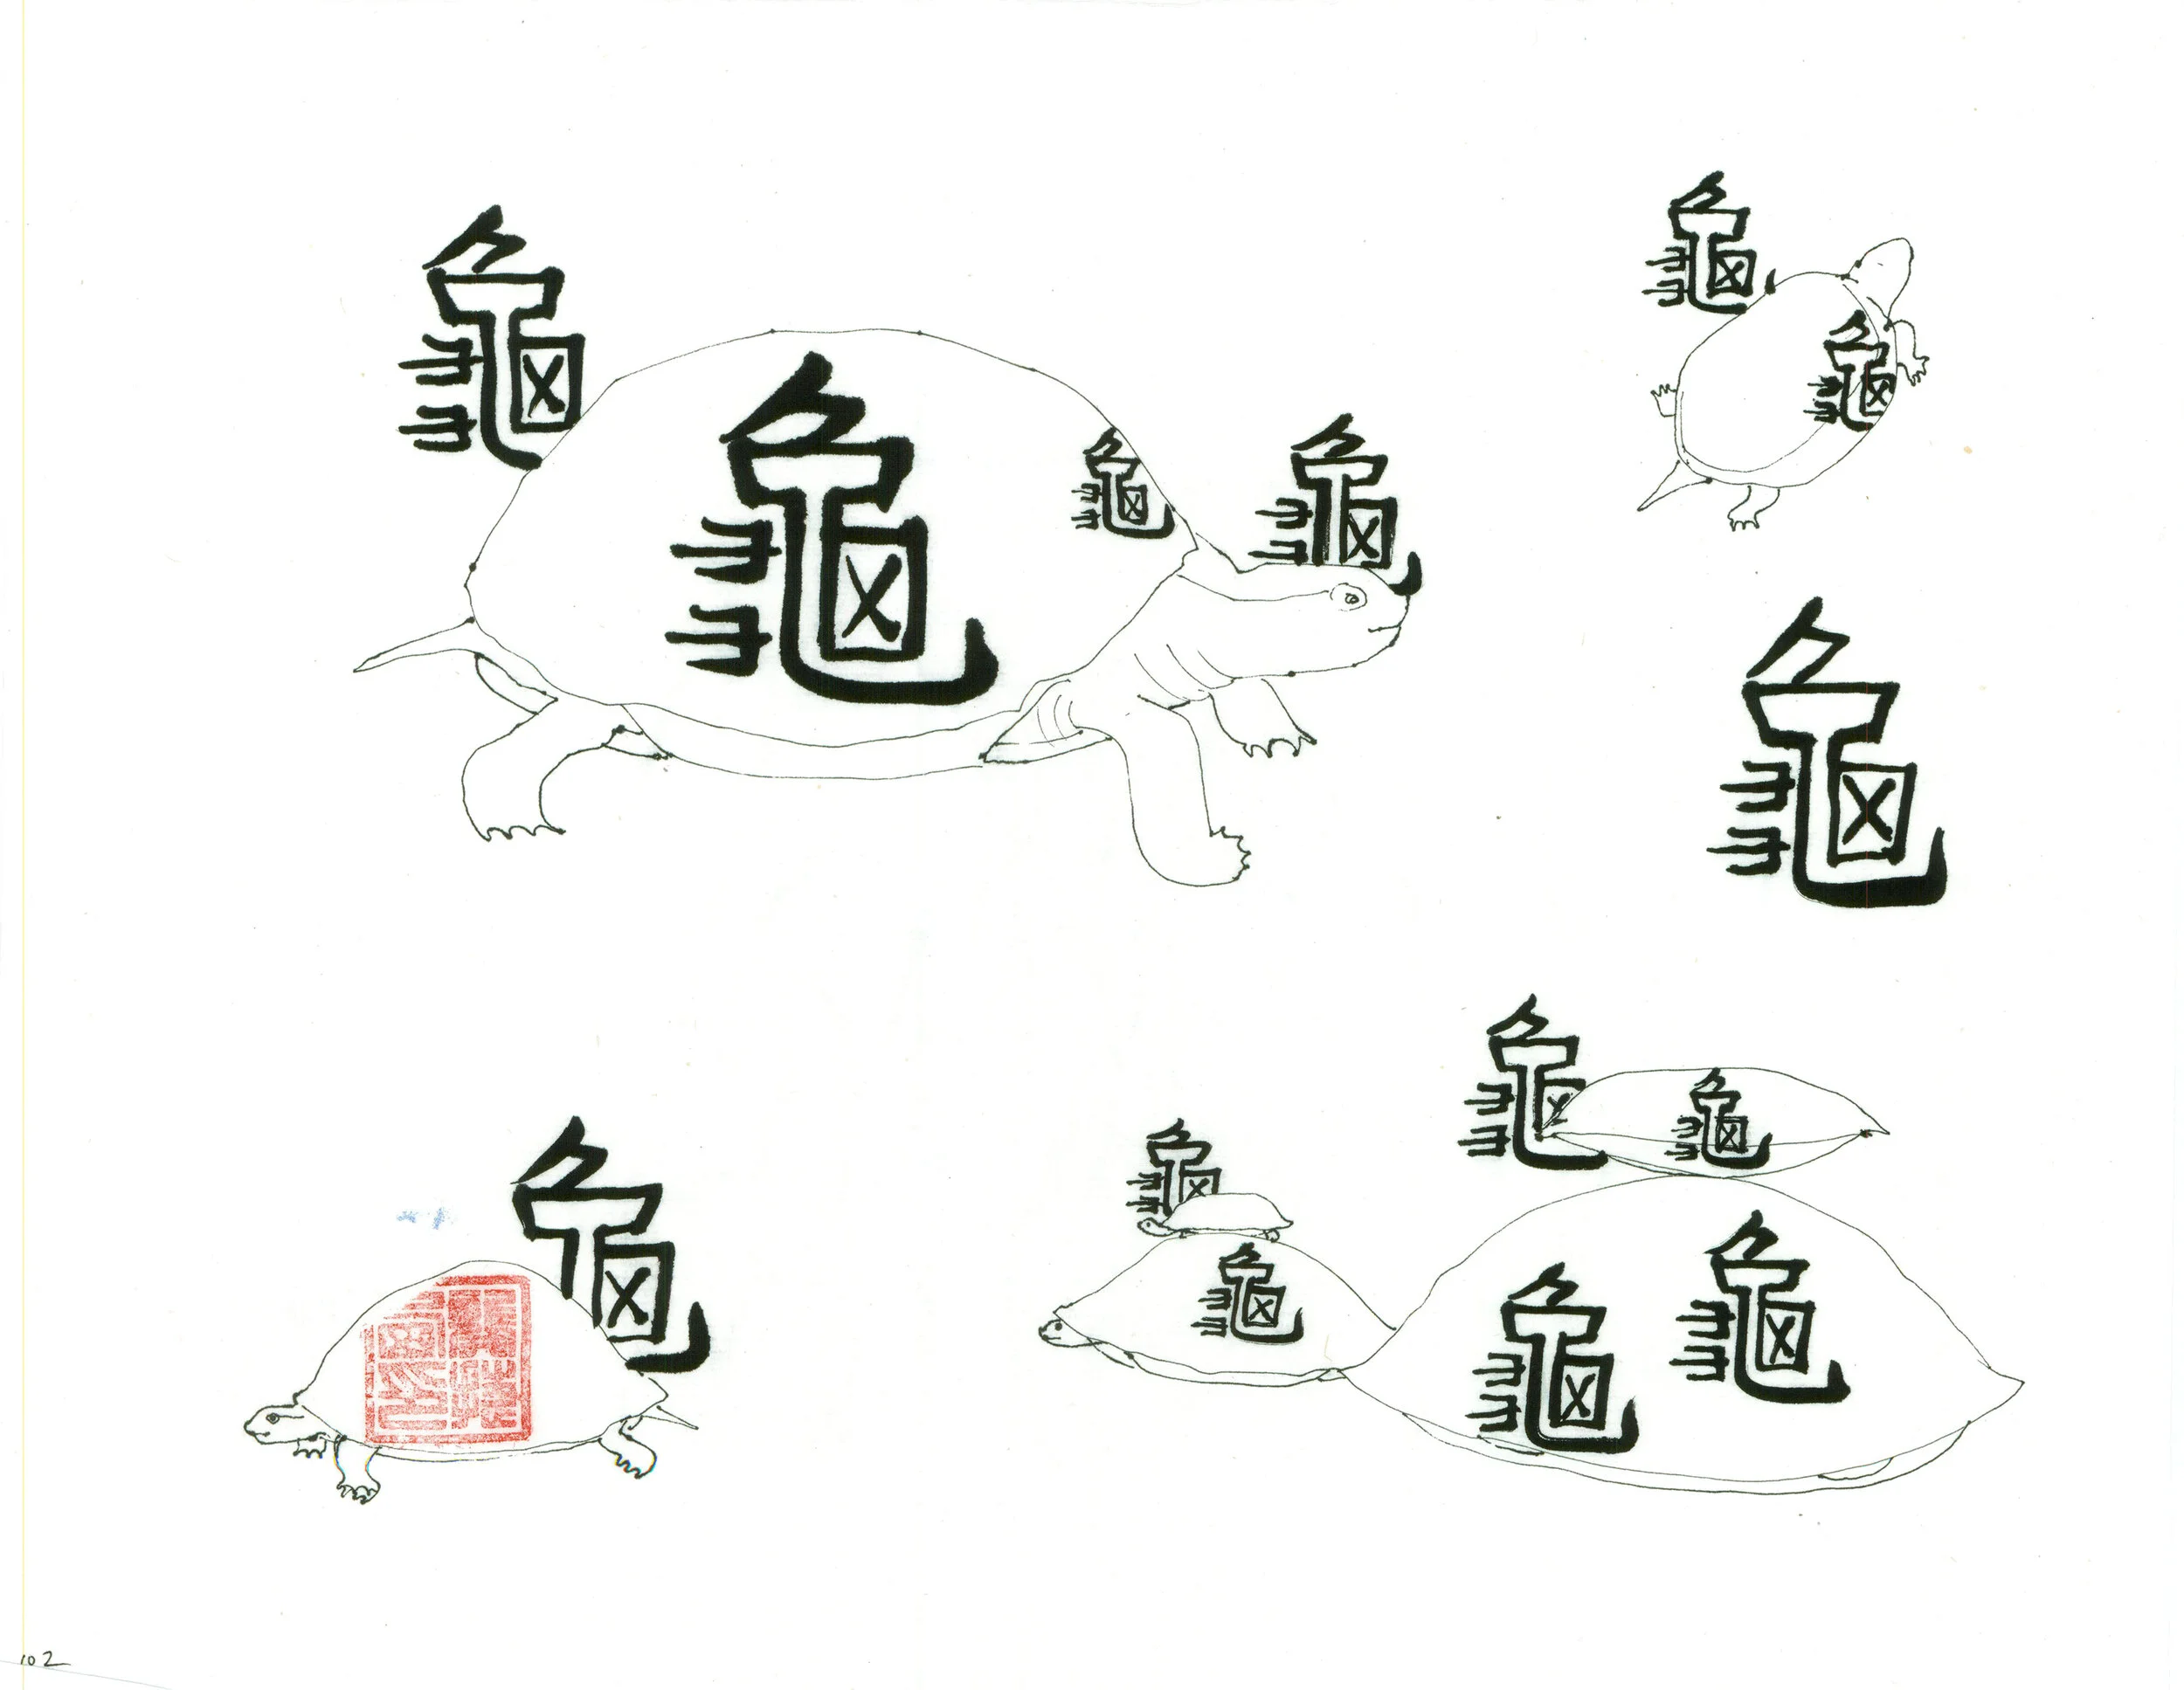 龜
龜
龜
龜
龜
龜
龜
龜
龜
龜
龜
龜
龜
龜
102